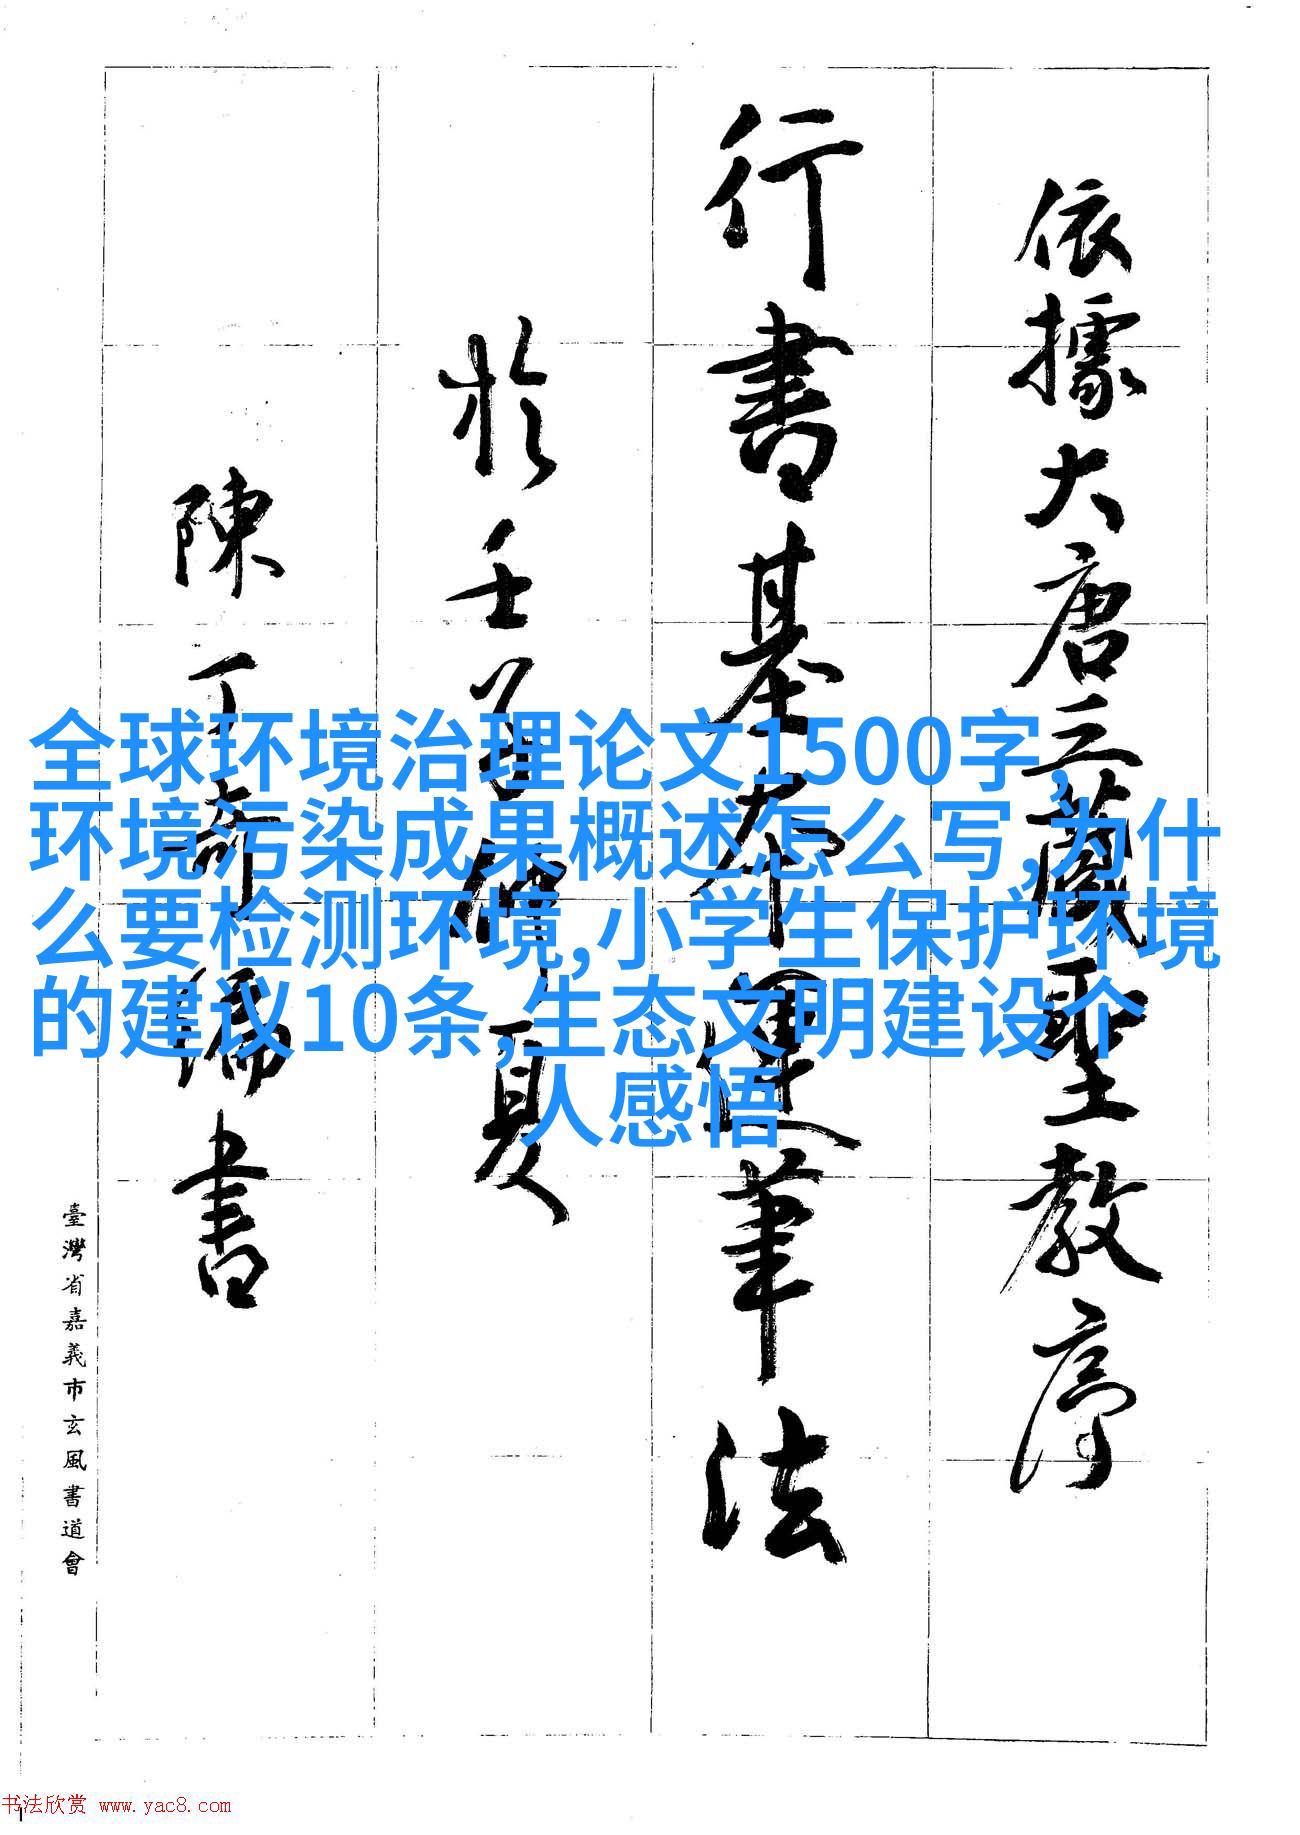 依據大唐三藏聖教序
行書基本運筆法
於壬戌仲夏
陳丁奇編書
臺灣省嘉義市玄風書道會
全球环境治理论文1500字,
环境污染成果概述怎么写,为什
么要检测环境,小学生保护环境
的建议10条,生态文明建设个
人感悟
书法欣赏 www.yac8.com